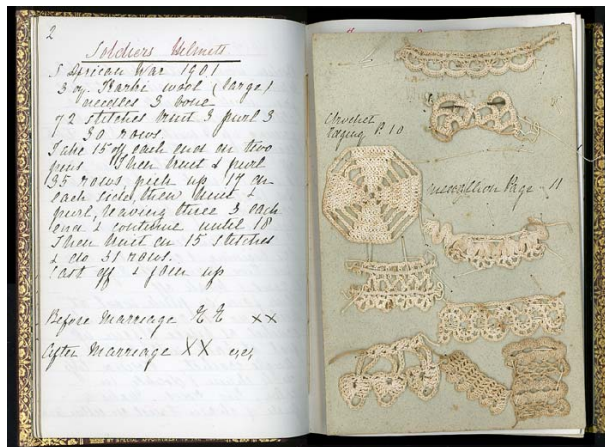 2
Soldiers Helmets
S African War 1901
3 oz. Karki wool (large)
needles 3 bone
72 stitches knit 3 purl 3
30 rows.
Take 15 off each end on two
pins. Then knit & purl
35 rows, pick up 17 on
each side, then knit &
purl, leaving three 3 each
end & continue until 18
Then knit on 15 stitches
& do 31 rows.
Cast off & join up
Before Marriage XX
After Marriage XX
Crochet
Edging P. 10
Medallion Page - 11